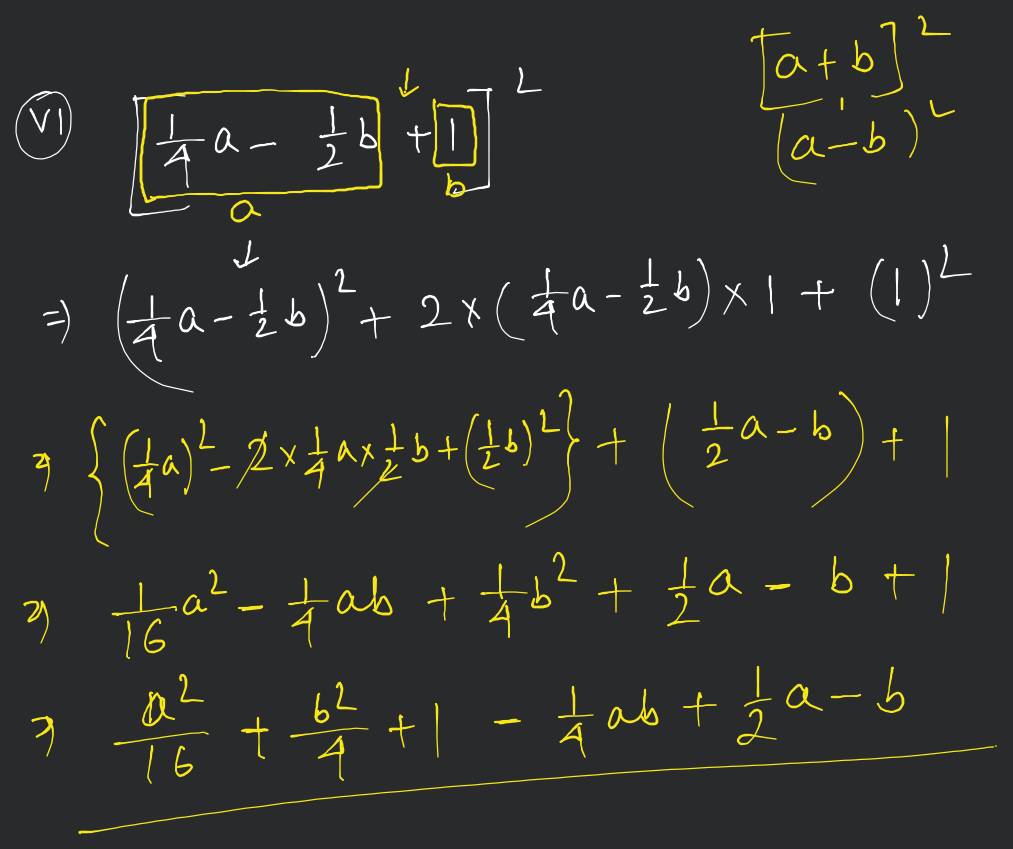 [a + b]²
(a - b)²
(VI) [1/4 a - 1/2 b + 1]²
a b
⇒ (1/4 a - 1/2 b)² + 2 × (1/4 a - 1/2 b) × 1 + (1)²
⇒ {(1/4 a)² - 2 × 1/4 a × 1/2 b + (1/2 b)²} + (1/2 a - b) + 1
⇒ 1/16 a² - 1/4 ab + 1/4 b² + 1/2 a - b + 1
⇒ a²/16 + b²/4 + 1 - 1/4 ab + 1/2 a - b